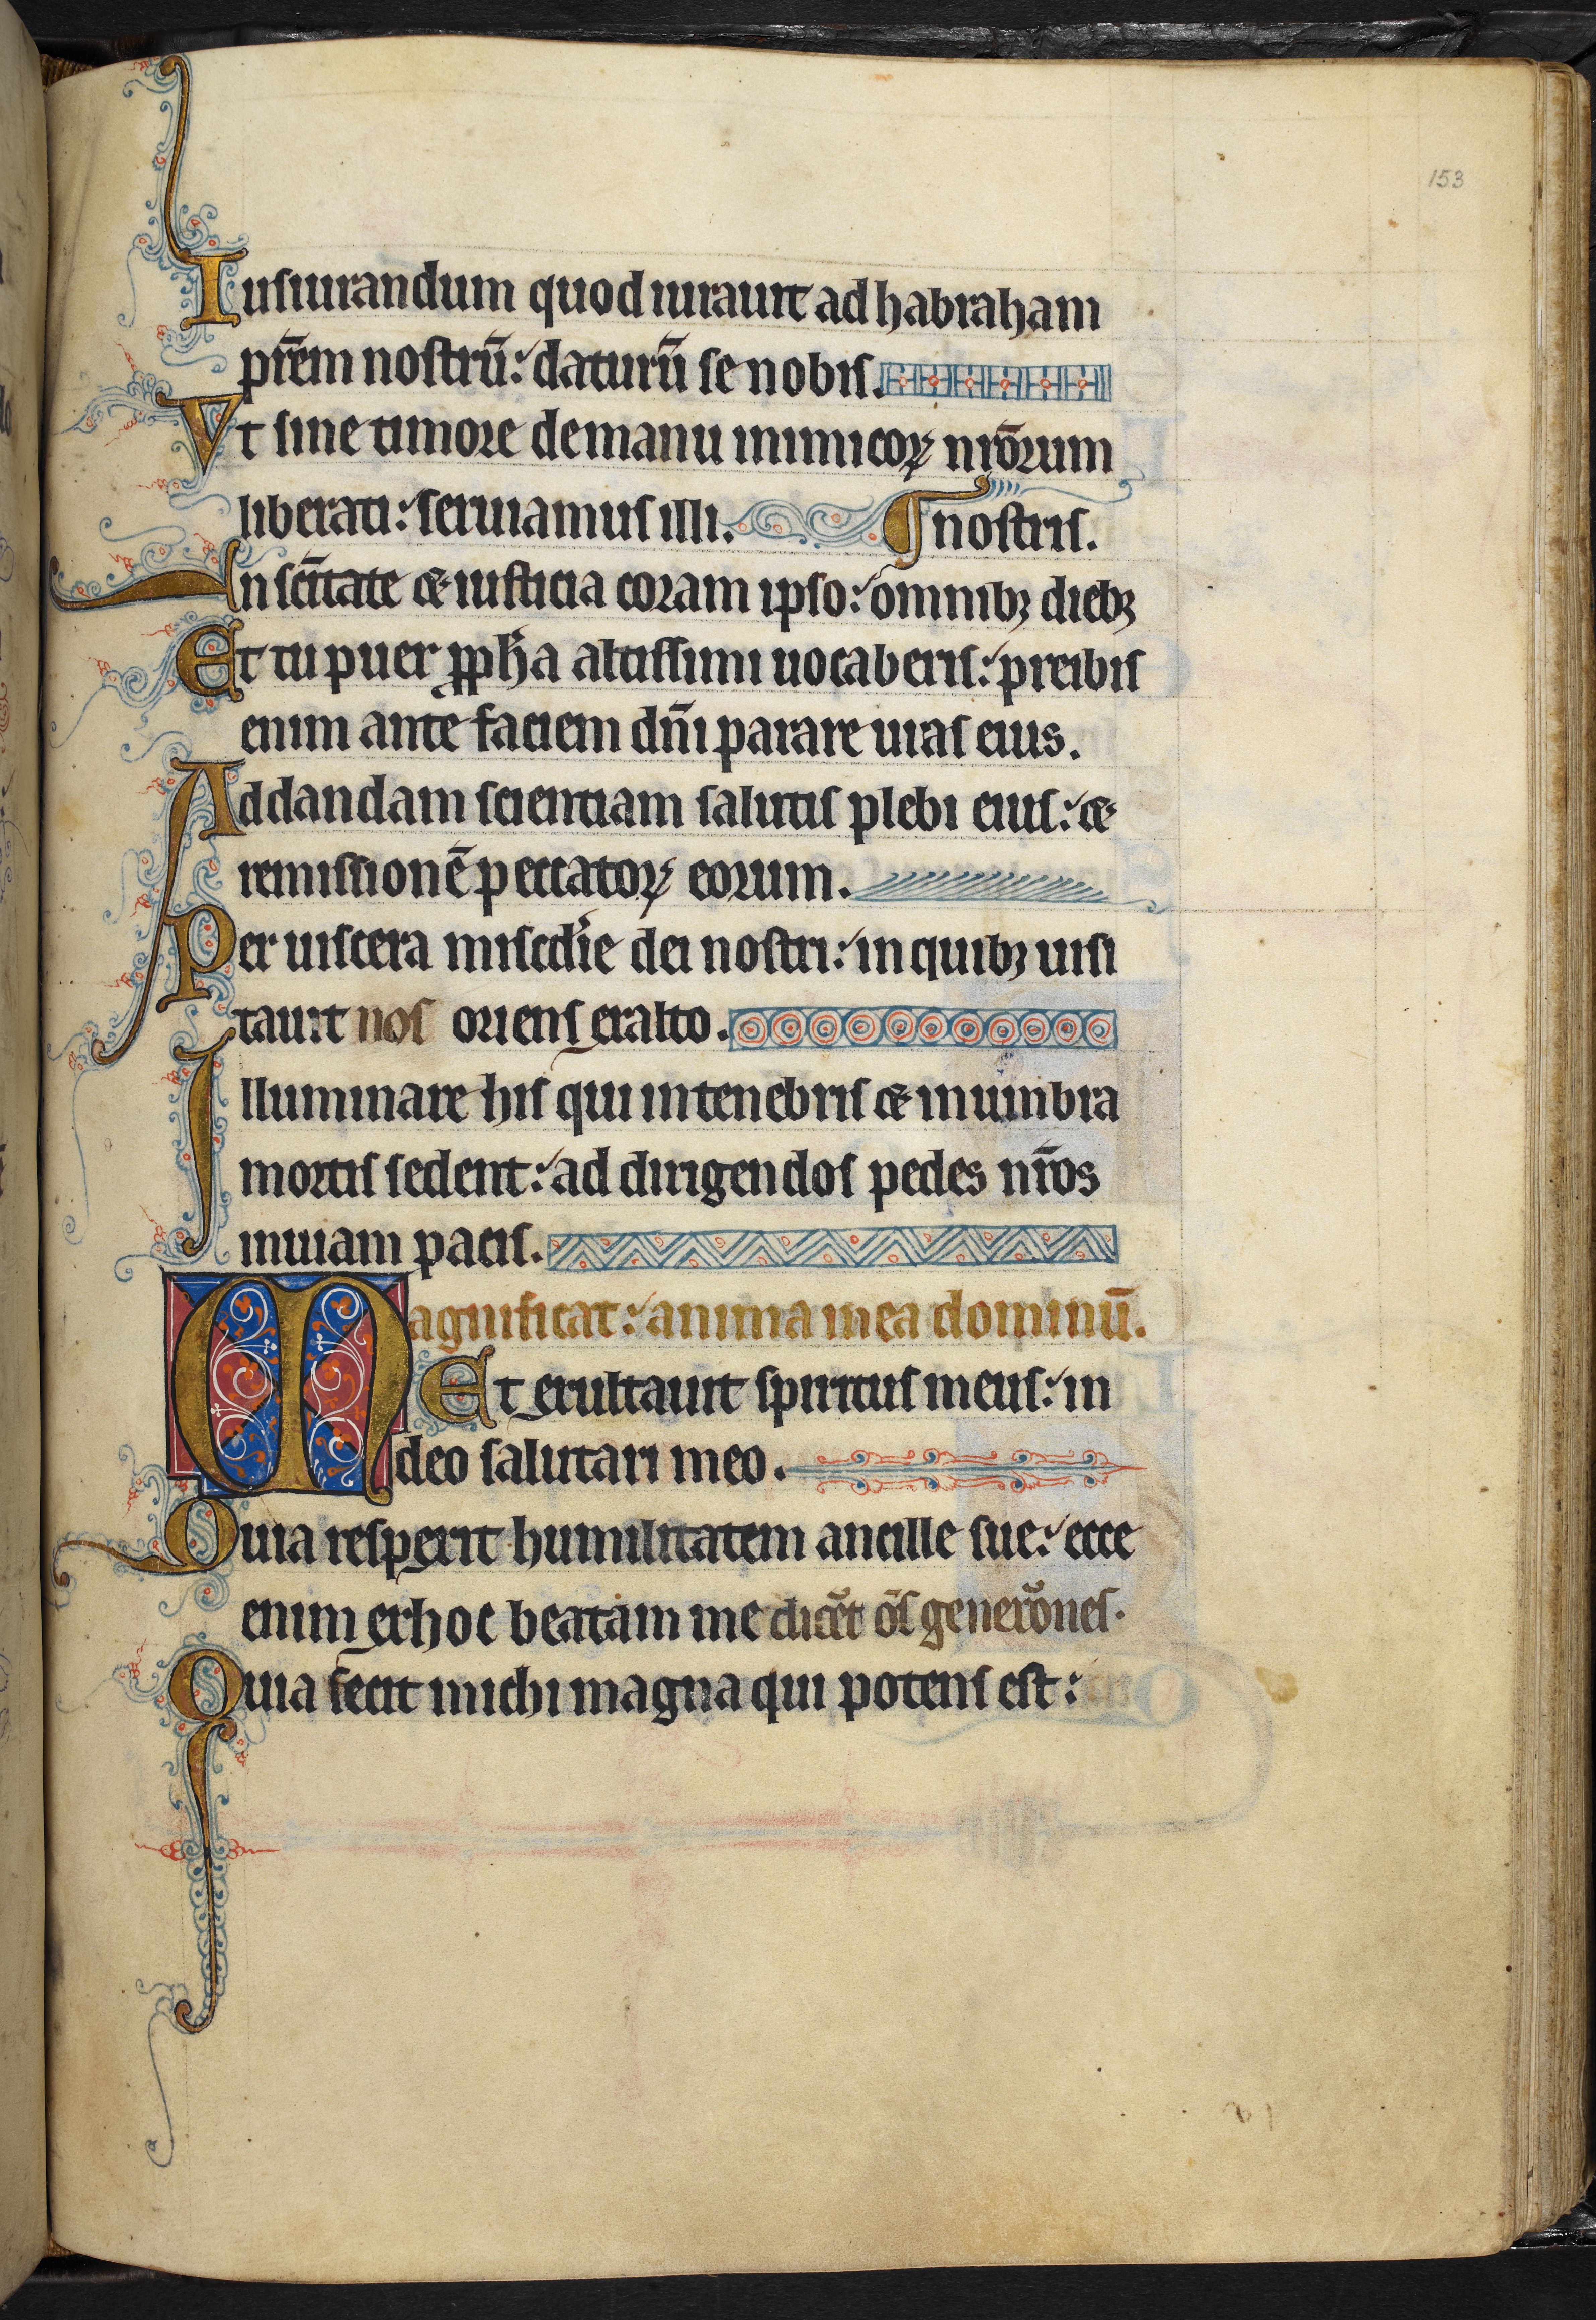 153
Iusiurandum quod iurauit ad habraham
pr̄em nostrū: daturū se nobis.
Vt sine timore de manu inimicoꝝ nr̄orum
liberati: seruiamus illi. ¶ nostris.
In sc̄itate ⁊ iusticia coram ipso: omnibꝫ diebꝫ
Et tu puer ꝓph̄a altissimi uocaberis: preibis
enim ante faciem dn̄i parare uias eius.
Ad dandam scientiam salutis plebi eius: ⁊
remissionē peccatoꝝ eorum.
Per uiscera miscd̄ie dei nostri: in quibꝫ uisi
tauit nos oriens ex alto.
Illuminare his qui in tenebris ⁊ in umbra
mortis sedent: ad dirigendos pedes nr̄os
in uiam pacis.
Magnificat: anima mea dominū.
Et exultauit spiritus meus: in
deo salutari meo.
Quia respexit humilitatem ancille sue: ecce
enim ex hoc beatam me dicēt ōs generōnes.
Quia fecit michi magna qui potens est: